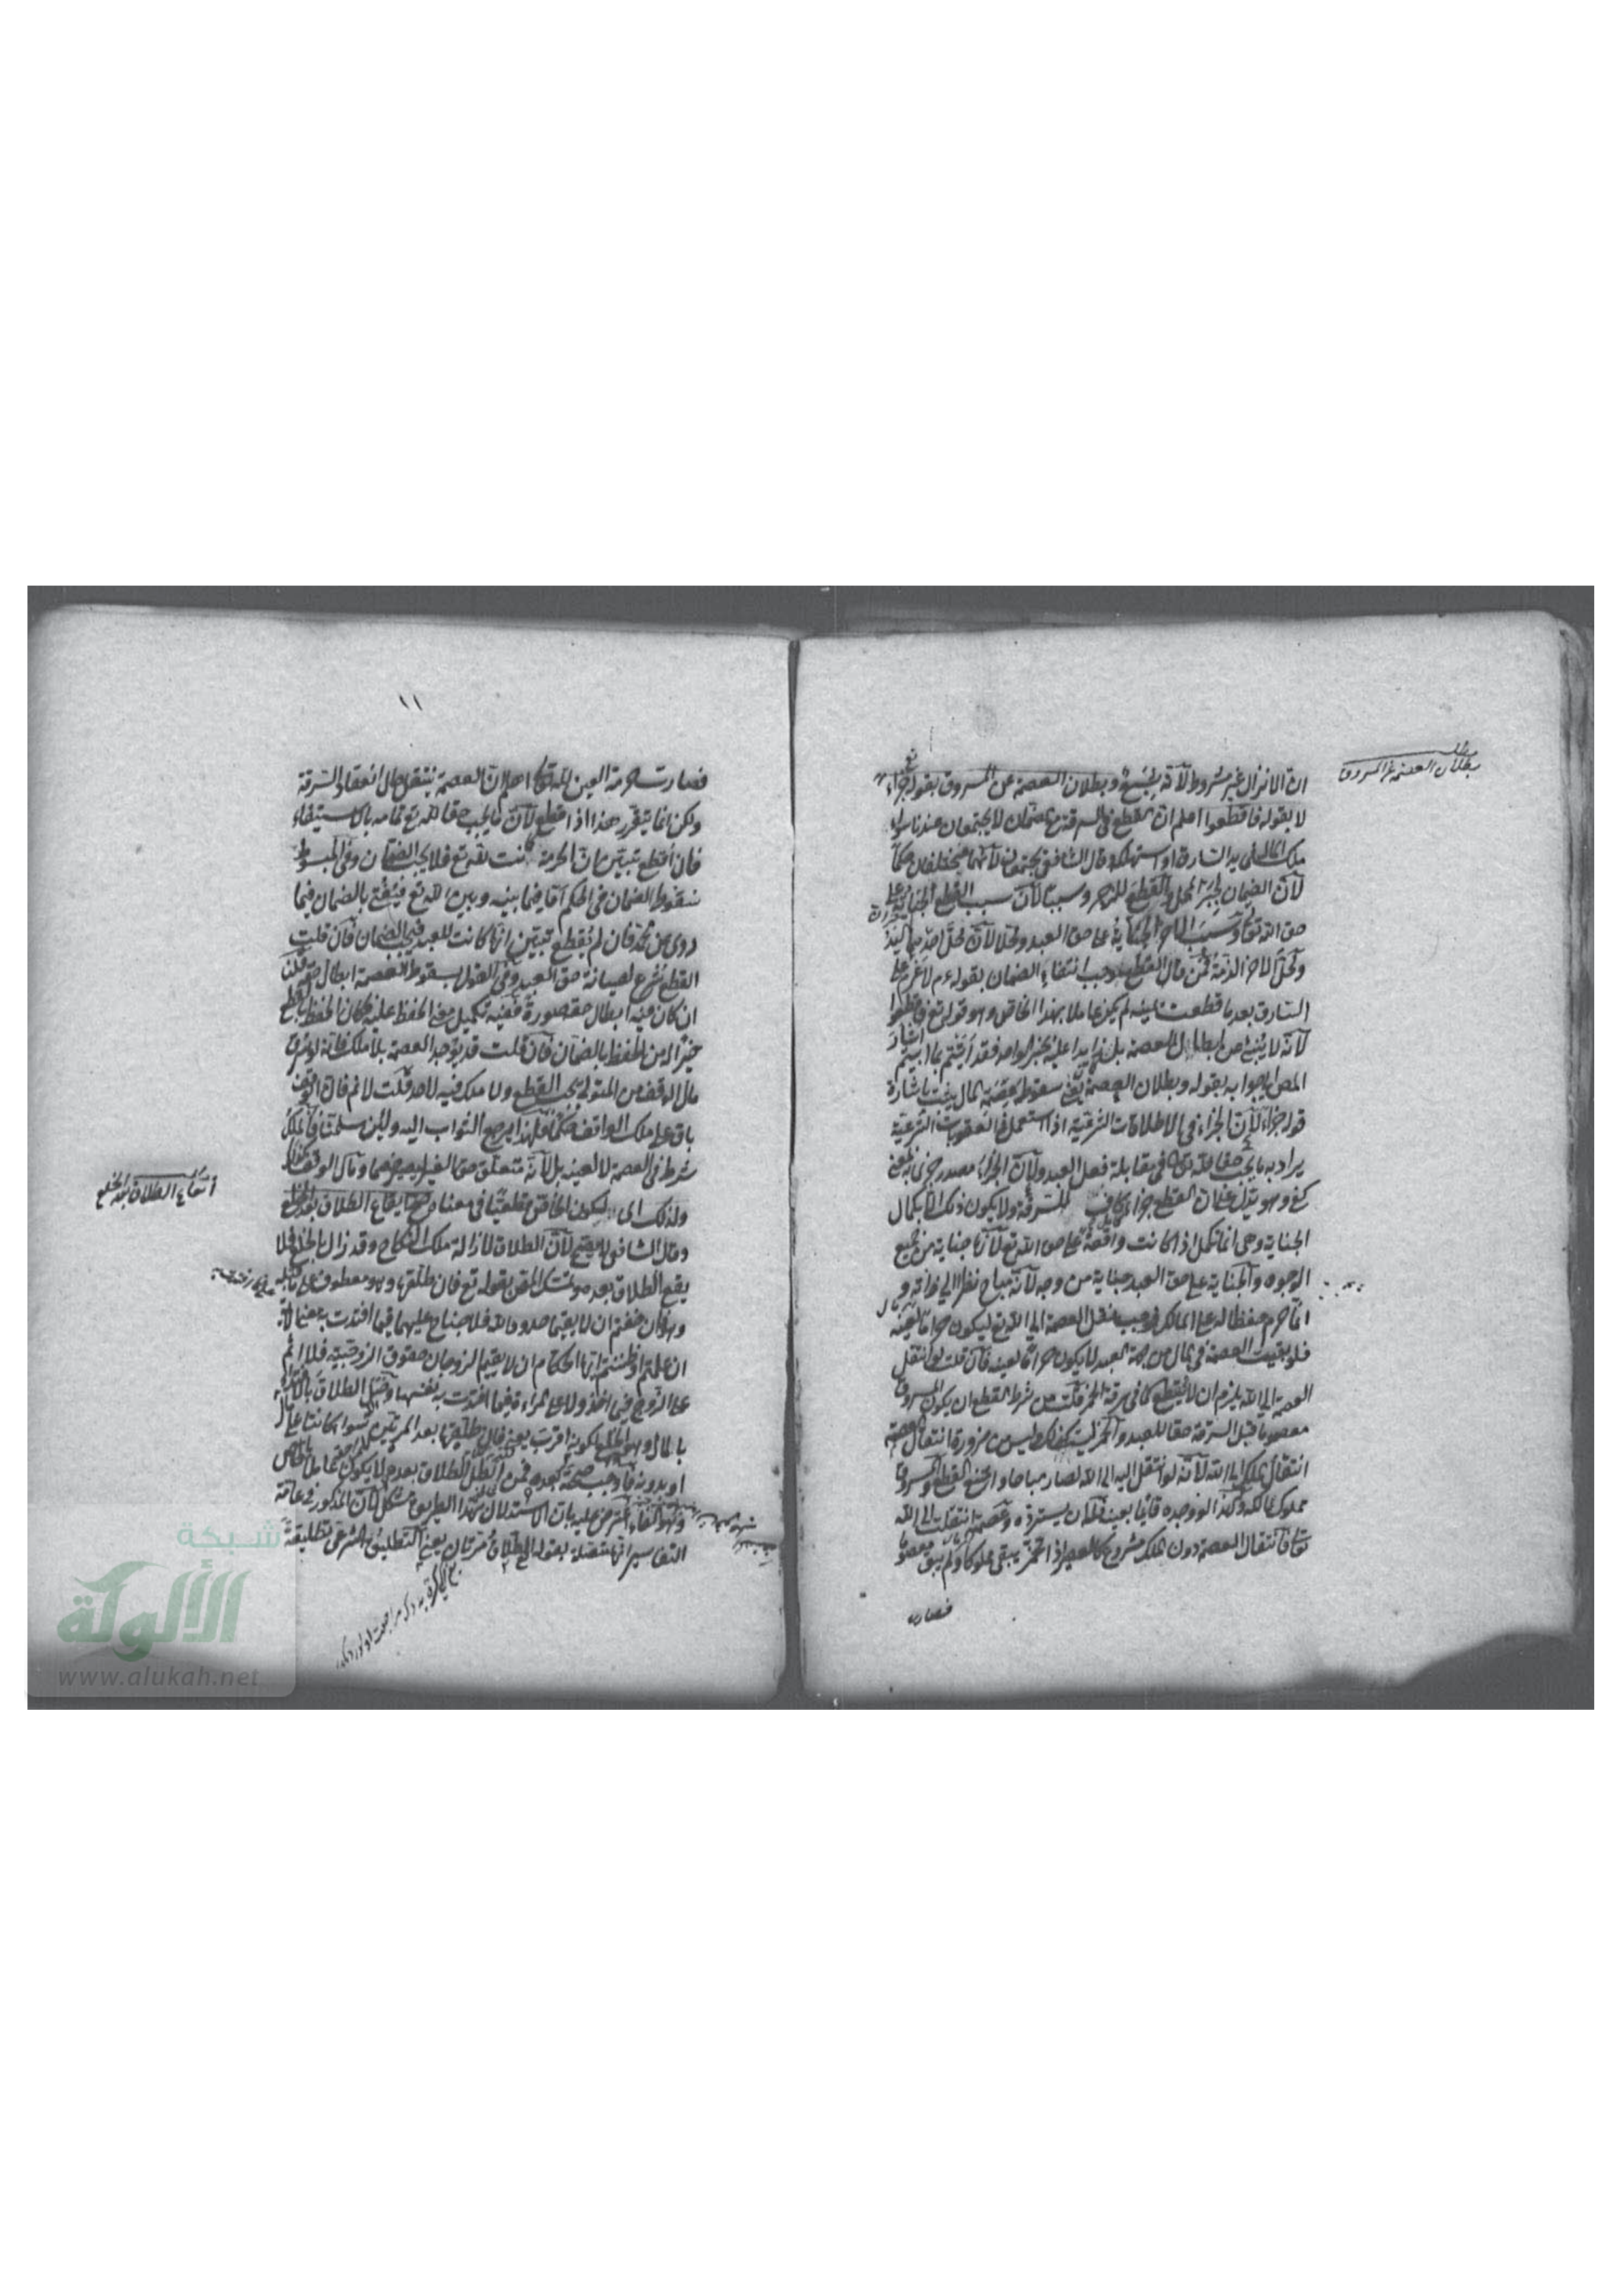 بطلان العصمة عن المسروق
ان الانزال غير مشروط لانه شبع وبطلان العصمة عن المسروق بقوله جزاء
لا بقوله فاقطعوا اعلم ان القطع في السرقة مع الضمان لا يجتمعان عندنا سواء
هلك المال في يد السارق او استهلكه وقال الشافعي يجتمعان لانهما مختلفان حكما
لان الضمان لجبر المحل والقطع للزجر وسببا لان سبب القطع الجناية على
حق الله تعالى وسبب الاخر الجناية على حق العبد ومحلا لان محل احدهما اليد
ومحل الاخر الذمة فمن قال القطع يوجب انتفاء الضمان بقوله عم لا غرم على
السارق بعد ما قطعت يمينه لم يكن عاملا بهذا الخاص وهو قوله تع فاقطعوا
لانه لا ينبئ عن ابطال العصمة بل زايدا عليه بخبر الواحد فقد اتيتم بما ابيتم
اشار المص الى جوابه بقوله وبطلان العصمة يعني سقوط عصمة المال يثبت باشارة
قوله جزاء لان الجزاء في الاطلاقات الشرعية اذا استعمل في العقوبات الشرعية
يراد به ما يجب حقا لله تعالى في مقابلة فعل العبد ولان الجزاء مصدر جزى بمعنى
كفى وهو يدل على ان القطع جزاء كاف للسرقة ولا يكون ذلك الا بكمال
الجناية وهي انما تكمل اذا كانت واقعة على حق الله تع لانها جناية من جميع
الوجوه والجناية على حق العبد جناية من وجه لانه مباح نظرا الى ذاته و
انما حرم حفظا له على المالك فوجب نقل العصمة الى الله تع ليكون حراما لعينه
فلو بقيت العصمة في المال من جهة العبد لا يكون حراما لعينه فان قلت لو انتقل
العصمة الى الله يلزم ان لا يقطع كما في سرقة الخمر قلت من شرط القطع ان يكون المسروق
معصوما قبل السرقة حقا للعبد والخمر ليست كذلك وليس من ضرورة انتقال العصمة
انتقال الملك الى الله لانه لو انتقل اليه الى الله لصار مباحا وامتنع القطع والمسروق
مملوك لمالكه ولهذا لو وجده قائما بعينه فله ان يسترده وعصمة المال انتقلت الى الله
تعالى وانتقال العصمة دون الملك مشروع كالعصير اذا تخمر يبقى مملوكا ولم يبق معصوما
فصارت
١١
فصارت حرمة العين لله تعالى اعلم ان العصمة ينتقل حال انعقاد السرقة
ولكن انما يتقرر هذا اذا قطع لان ما يجب حقا لله تع تمامه بالاستيفاء
فان قطع تبين ان الحرمة كانت لله تع فلا يجب الضمان وفي المبسوط
سقوط الضمان في الحكم اما فيما بينه وبين الله تع فيفتى بالضمان فيما
روى عن محمد فان لم يقطع تبين انها كانت للعبد فيجب الضمان فان قلت
القطع شرع لصيانة حق العبد وفي القول بسقوط العصمة ابطال حقه قلنا
ان كان فيه ابطال حقه صورة ففيه تكميل معنى الحفظ عليه فكان الحفظ بالقطع
خيرا له من الحفظ بالضمان فان قلت قد يوجد العصمة بلا ملك فانه لو سرق
مال الوقف من المتولي يجب القطع ولا ملك فيه لاحد قلت لا نم فان الوقف
باق على ملك الواقف حكما ولهذا يرجع الثواب اليه ولئن سلمنا فالملك
شرط في العصمة لا لعينه بل لانه متعلق حق الغير
ولذلك اى لكون الخاص قطعيا في معناه صح ايقاع الطلاق بعد الخلع
ايقاع الطلاق بعد الخلع
وقال الشافعي لا يصح لان الطلاق لازالة ملك النكاح وقد زال بالخلع فلا
يقع الطلاق بعده وتمسك المص بقوله تع فان طلقها وهو معطوف على ما قبله
وهو فان خفتم ان لا يقيما حدود الله فلا جناح عليهما فيما افتدت به معناه
ان علمتم او ظننتم ايها الحكام ان لا يقيم الزوجان حقوق الزوجية فلا اثم
على الزوج في اخذه ولا على المراة فيما افتدت به نفسها
بالمال وهو الخلع لكونه اقرب يعني فان طلقها بعد المرتين سواء كانتا على مال
او بدونه فاوجب صحته بعده فمن ابطل الطلاق بعده لا يكون عاملا بالخاص
وهو الفاء اعترض عليه بان الاستدلال بهذا الطريق مشكل لان المذكور في عامة
التفاسير انها متصلة بقوله الطلاق مرتان يعني التطليق الشرعي تطليقة
شبكة
الألوكة
www.alukah.net